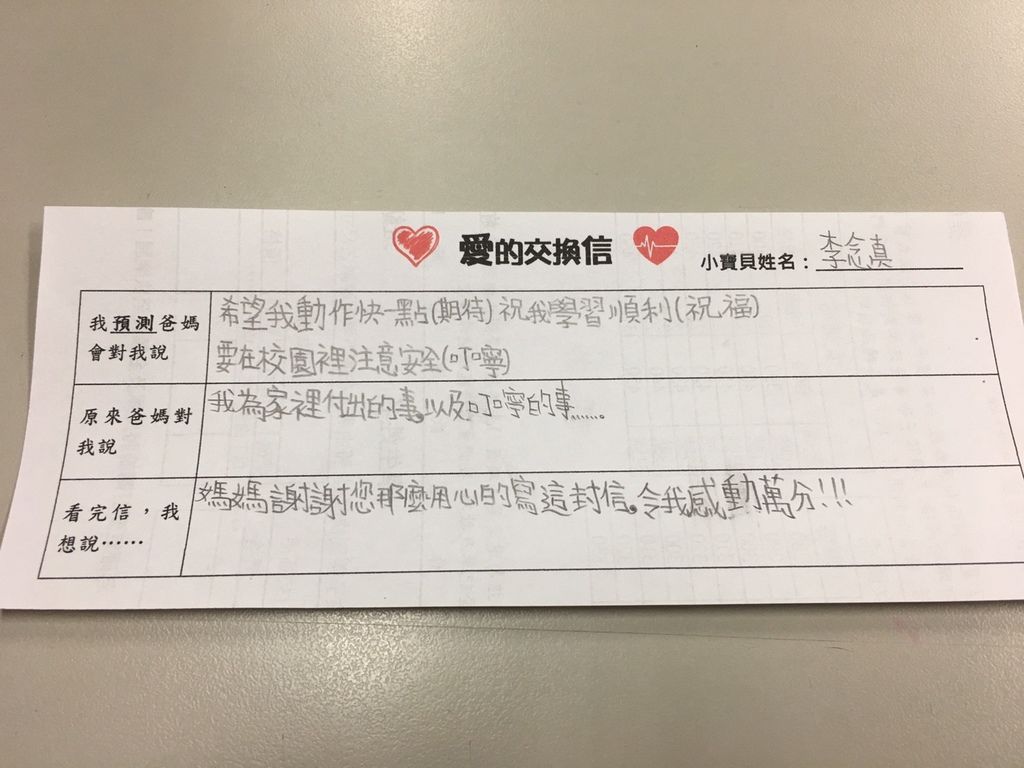 愛的交換信
小寶貝姓名：李念真
我預測爸媽
會對我說
希望我動作快一點(期待)祝我學習順利(祝福)
要在校園裡注意安全(叮嚀)
原來爸媽對
我說
我為家裡付出的事以及叮嚀的事......。
看完信，我
想說⋯⋯
媽媽謝謝您那麼用心的寫這封信。令我感動萬分!!!